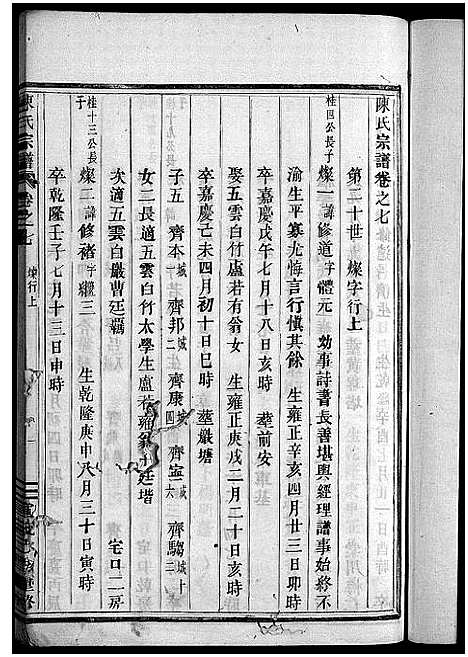 陳氏宗譜卷之七
第二十世 燦字行上
桂四公長子
燦一諱修道字體元 幼事詩書長善堪輿經理譜事始終不
渝生平寡尤悔言行慎其餘 生雍正辛亥四月廿三日卯時
卒嘉慶戊午七月十八日亥時 塟前安車基
娶五雲白竹盧若有翁女 生雍正庚戌二月二十日亥時
卒嘉慶己未四月初十日巳時 塟嚴塘
子五 齊本城一 齊邦城二 齊康城四 齊寍城六 齊騶城十二
女二長適五雲白竹太學生盧 廷堦
次適五雲白嚴曹廷鞲 宅口二房
桂十三公長子
燦二諱修褚字繼三 生乾隆庚申八月三十日寅時
卒乾隆壬子七月十三日申時
陳氏宗譜 卷之七 燦行上